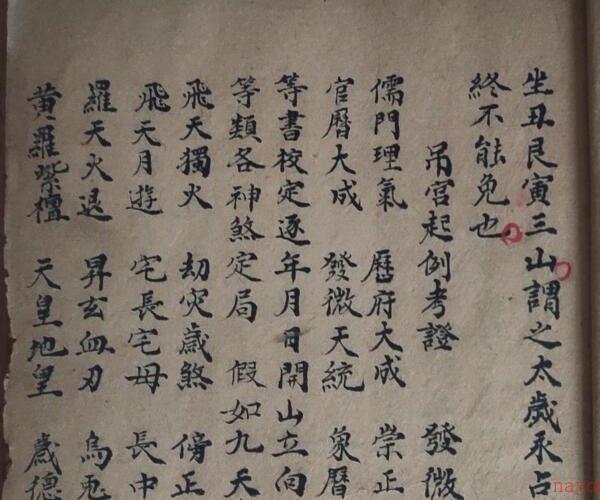 坐丑艮寅三山謂之太歲承占
終不能免也
吊宮起例考證 發微
儒門理氣 曆府大成 崇正
官曆大成 發微天統 象曆
等書校定逐年月日開山立向
等類各神煞定局 假如九天
飛天獨火 劫灾歲煞 傍正
飛天月遊 宅長宅母 長中
羅天火退 昇玄血刃 烏兎
黄羅紫檀 天皇地皇 歲德